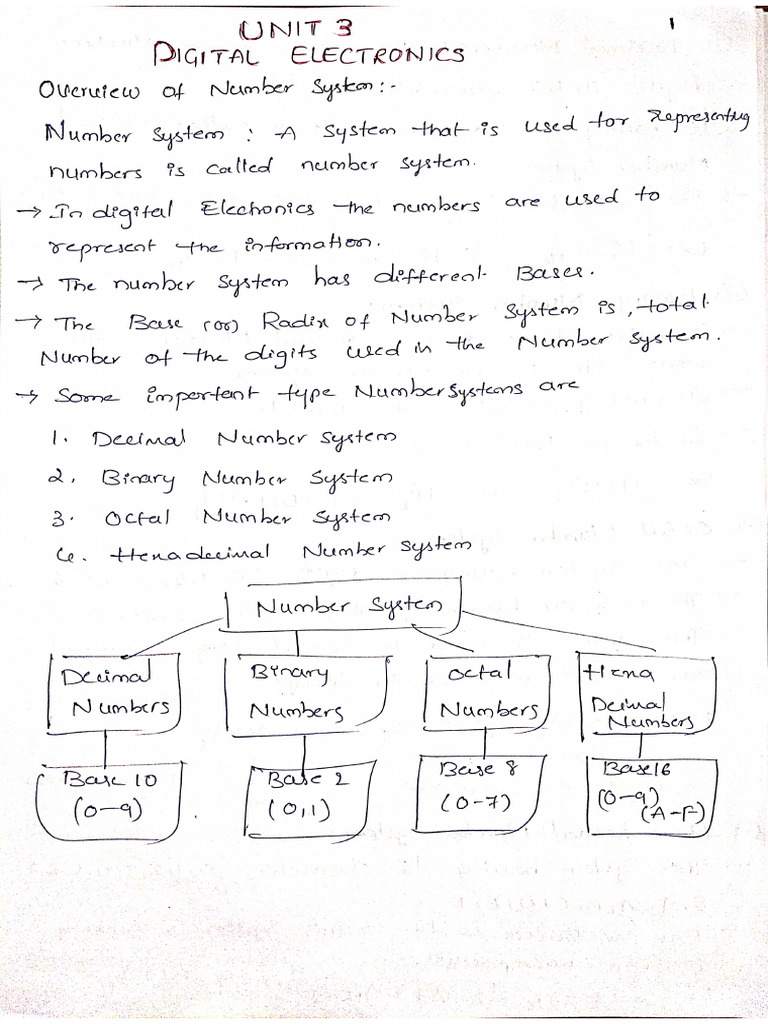 UNIT 3
1
DIGITAL ELECTRONICS
Overview of Number System:-
Number System : A System that is used for representing
numbers is called number system.
→ In digital Electronics the numbers are used to
represent the information.
→ The number System has different Bases.
→ The Base (or) Radix of Number System is, total
Number of the digits used in the Number System.
→ Some important type Number Systems are
1. Decimal Number System
2. Binary Number System
3. Octal Number System
4. Hexadecimal Number System
Number System
Decimal
Numbers
Binary
Numbers
Octal
Numbers
Hexa
Decimal
Numbers
Base 10
(0-9)
Base 2
(0,1)
Base 8
(0-7)
Base 16
(0-9)
(A-F)